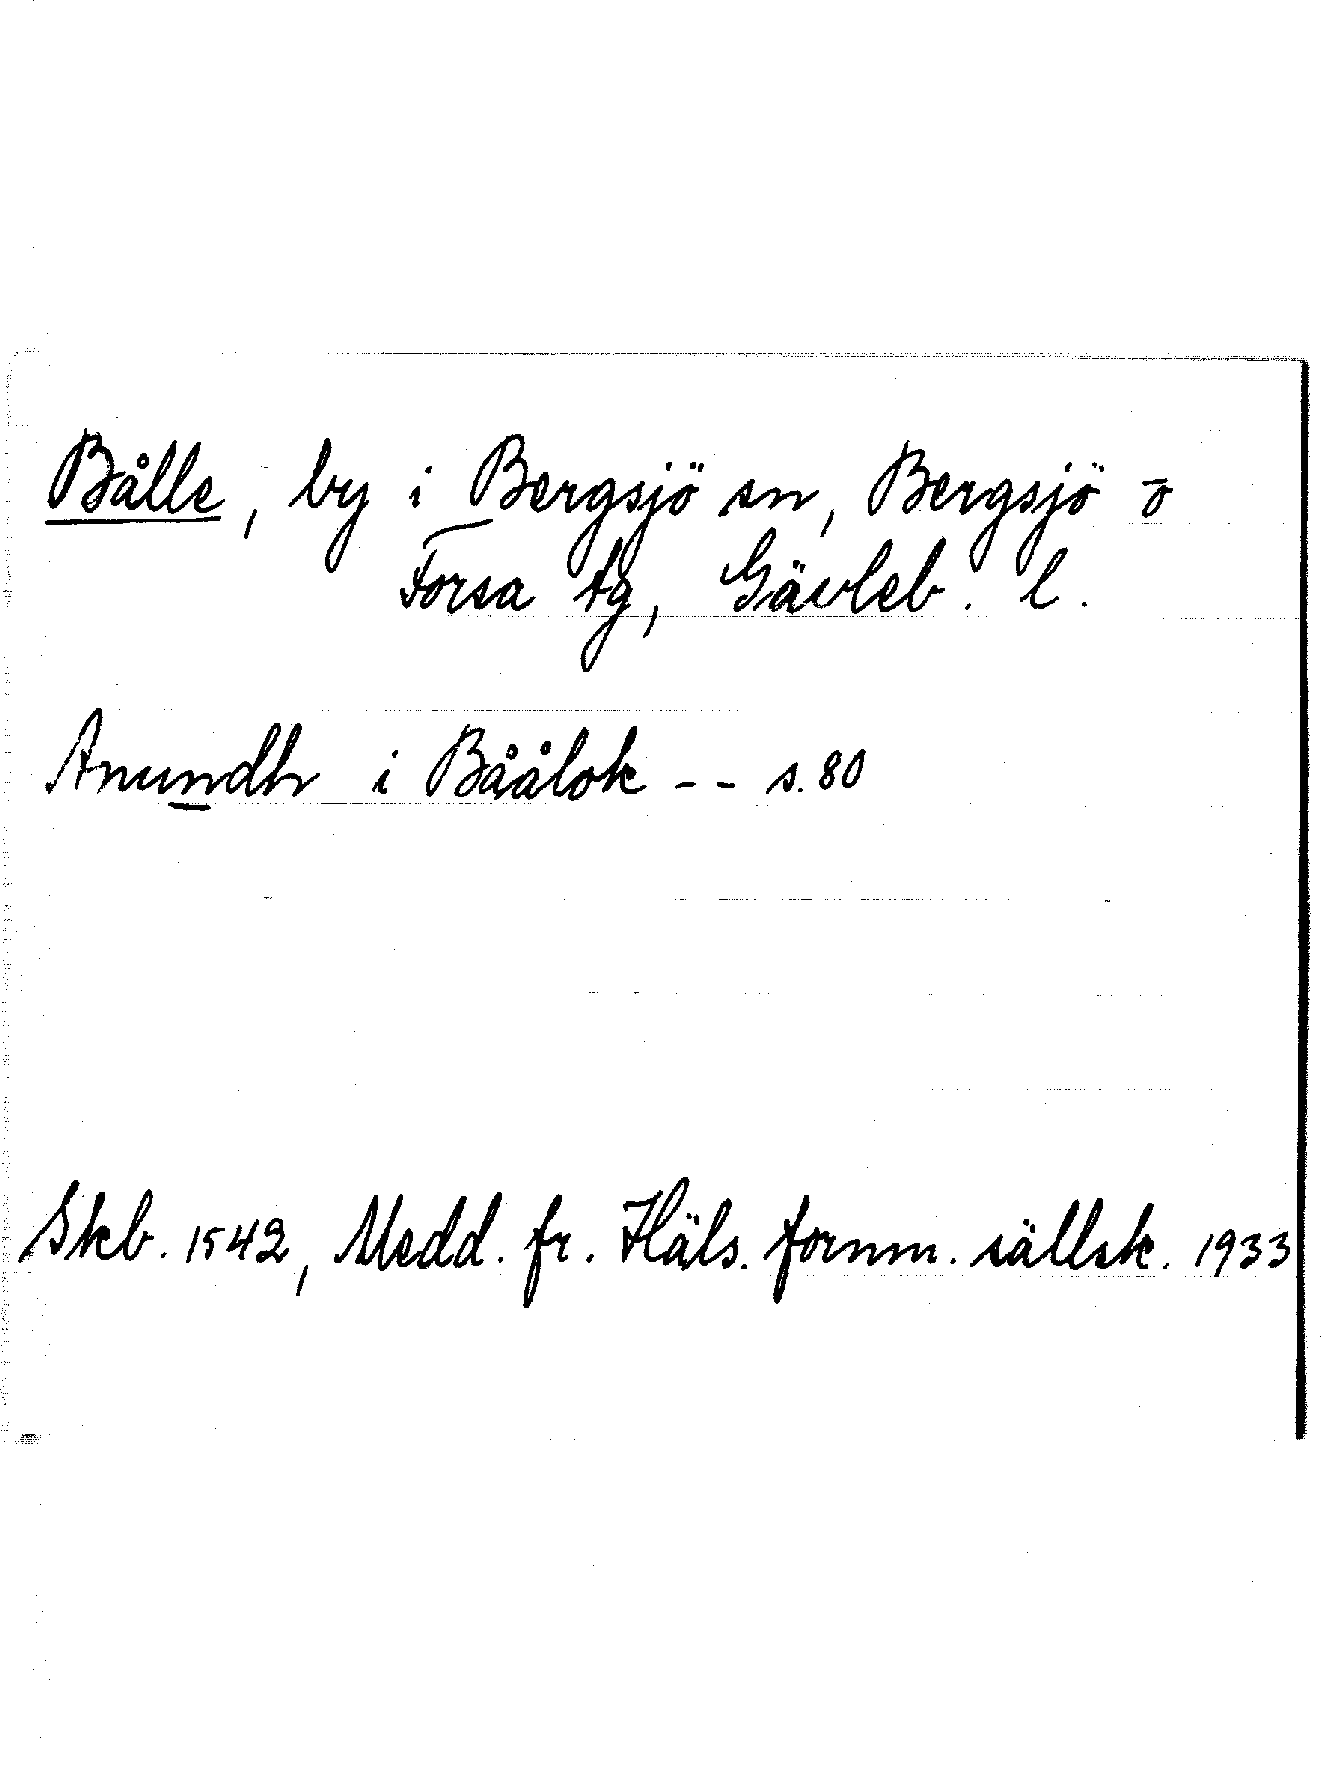 Bålle, by i Bergsjö sn, Bergsjö o
Forsa tg, Gävleb. l.
Anundh i Båålok -- s. 80
Skb. 1542, Medd. fr. Häls. fornm. sällsk. 1933